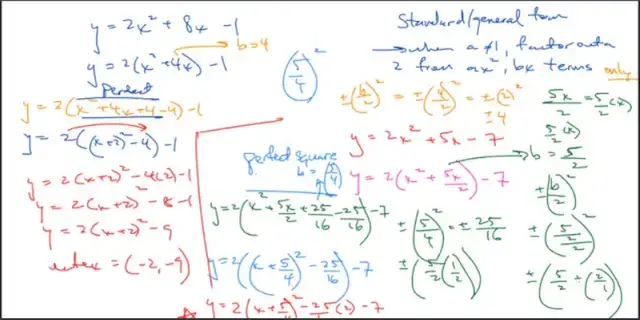 y = 2x² + 8x - 1
y = 2(x² + 4x) - 1
b = 4
perfect
y = 2(x² + 4x + 4 - 4) - 1
y = 2((x+2)² - 4) - 1
y = 2(x+2)² - 4(2) - 1
y = 2(x+2)² - 8 - 1
y = 2(x+2)² - 9
vertex = (-2, -9)
(5/4)²
Standard/general form
when a ≠ 1, factor out
2 from ax², bx terms only
±(b/2)² = ±(4/2)² = ±(2)²
±4
y = 2x² + 5x - 7
y = 2(x² + 5x/2) - 7
b = 5/2
perfect square
b = 5/4
y = 2(x² + 5x/2 + 25/16 - 25/16) - 7
y = 2((x + 5/4)² - 25/16) - 7
y = 2(x + 5/4)² - 25/16(2) - 7
±(5/4)² = ±25/16
±(5/2(1/2))
5x/2 = 5/2(x)
5/2(x)
±(b/2)²
±(5/2/2)²
±(5/2 ÷ (2/1))²